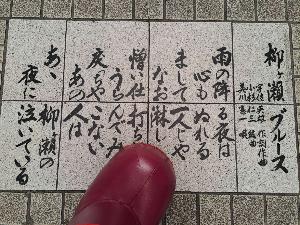 柳ヶ瀬ブルース
宇佐英雄 作詞作曲
小杉仁三 編曲
美川憲一 唄
雨の降る夜は
心もぬれる
まして一人じゃ
なお淋し
憎い仕打ち
うらんでみ
戻っちゃこない
あの人は
あゝ柳ヶ瀬の
夜に泣いている